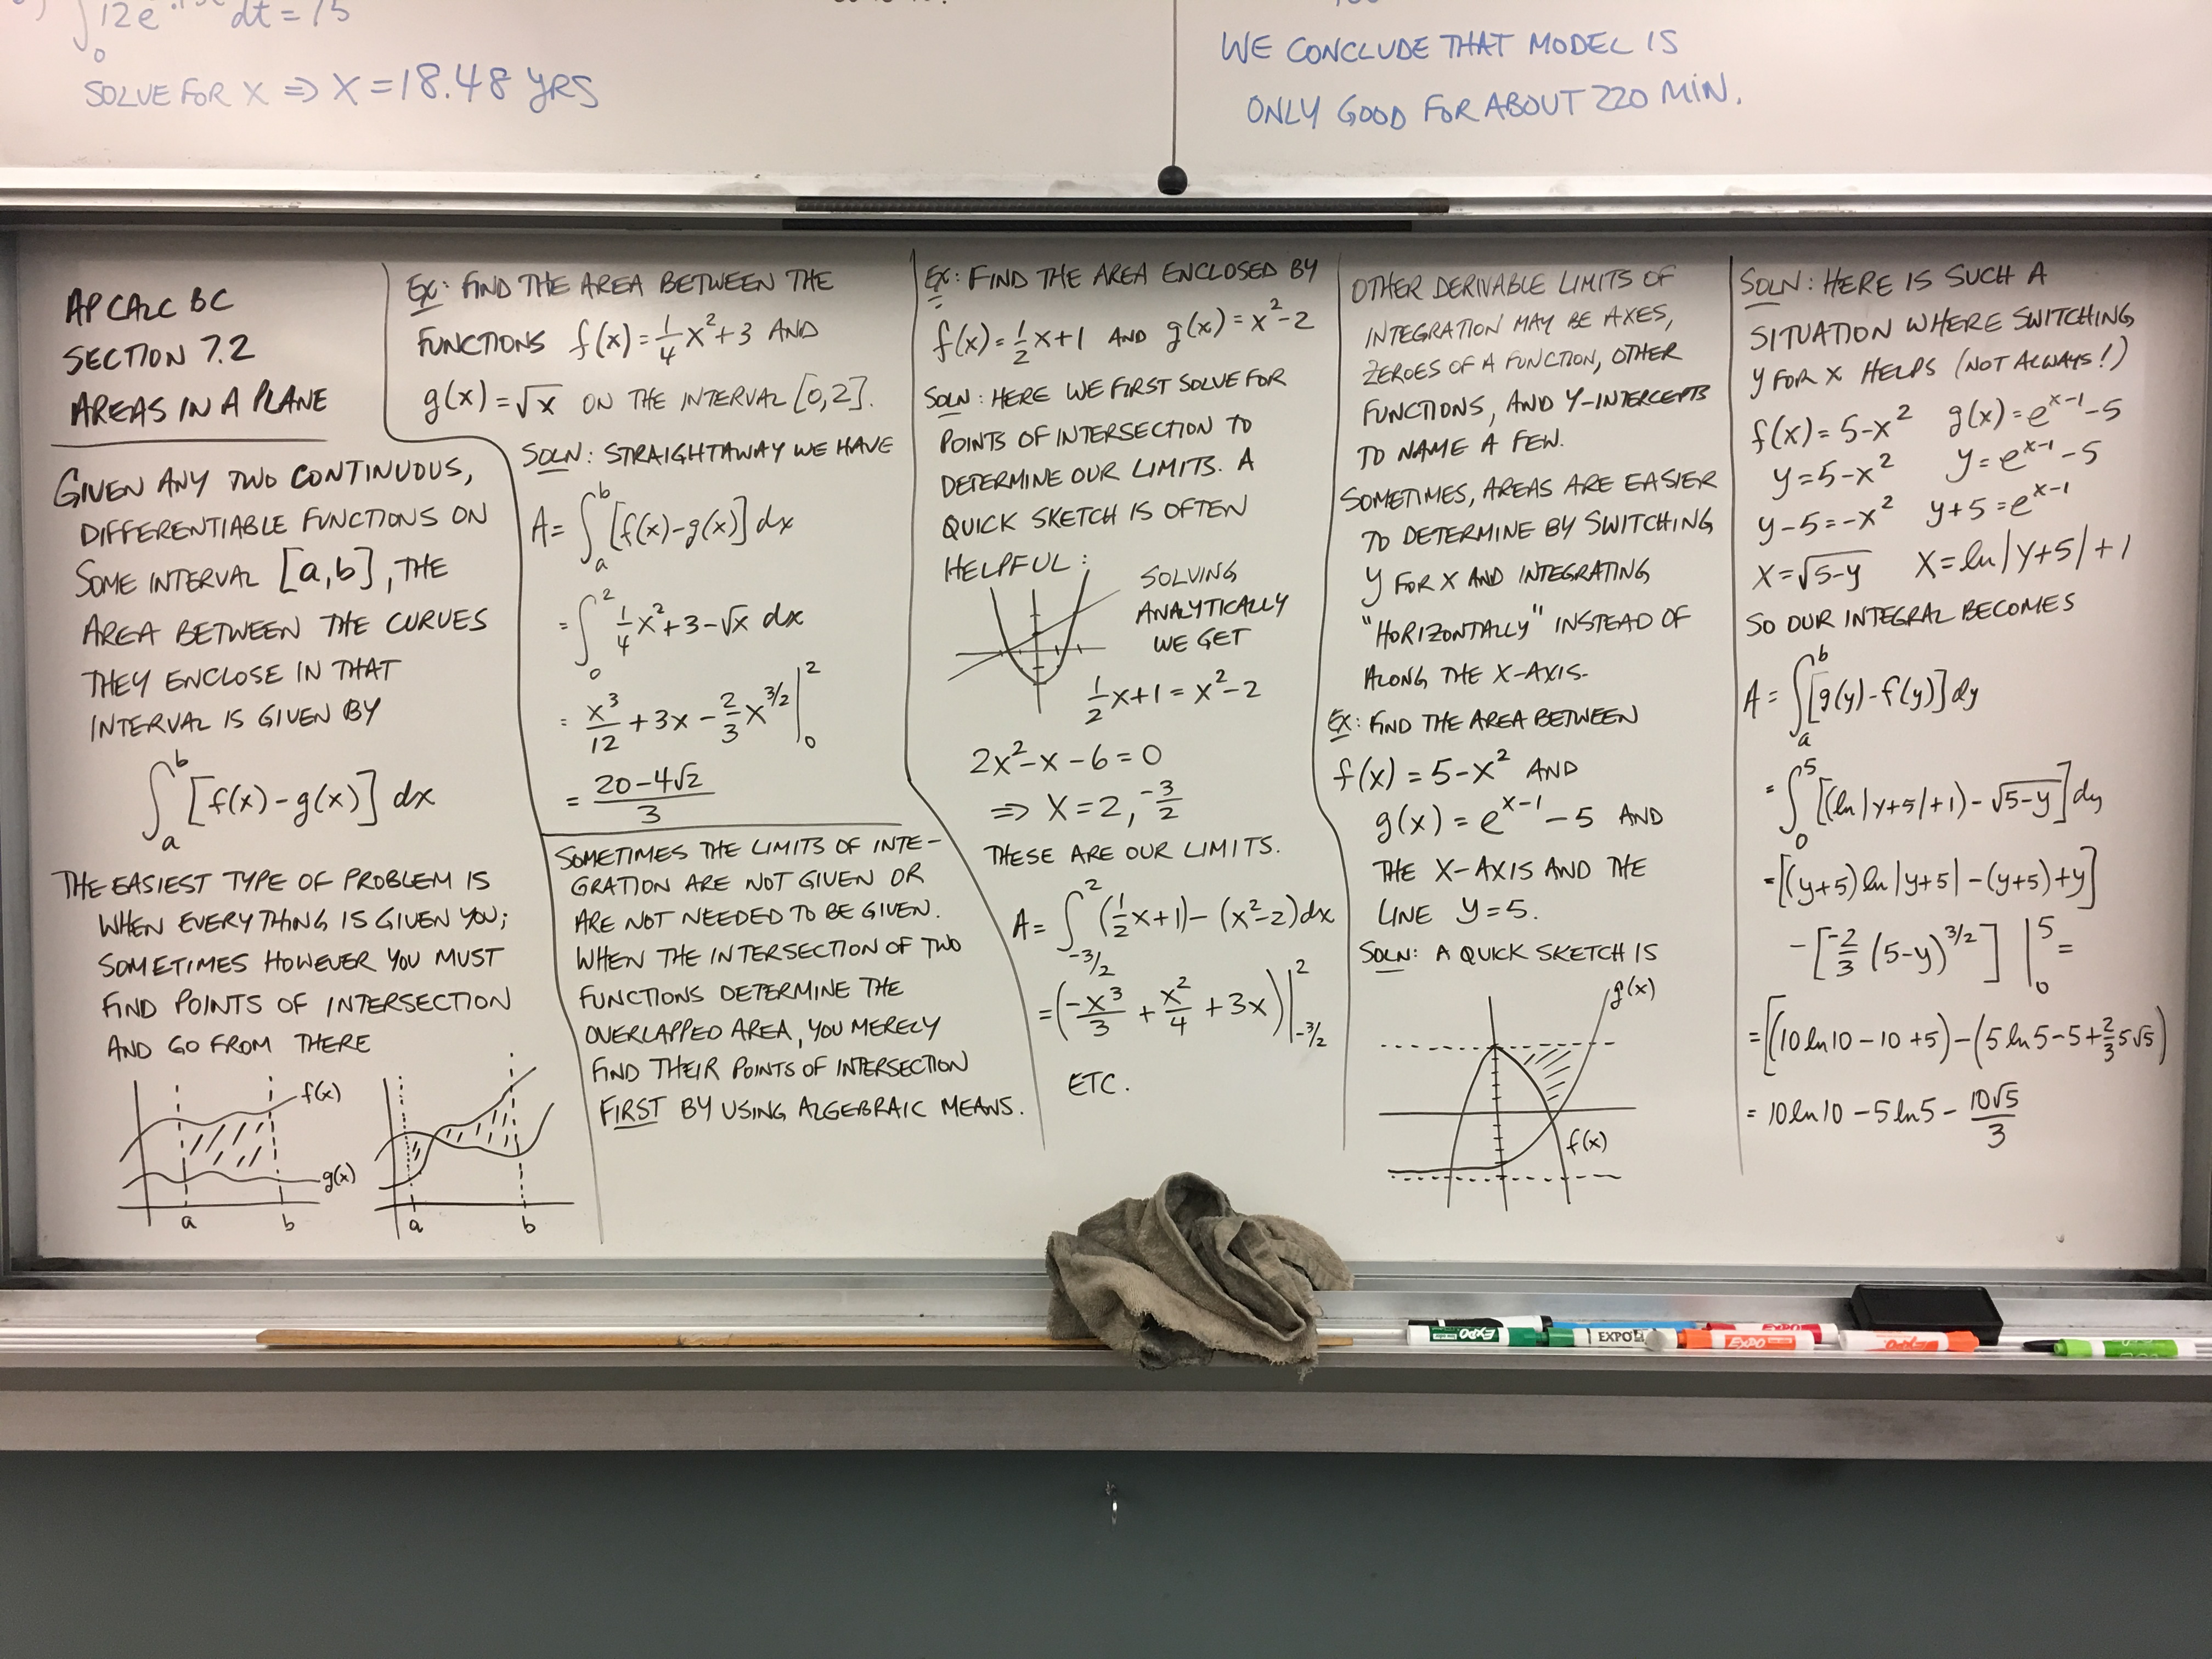 ∫₀ 12e dt = 15
SOLVE FOR X ⇒ X = 18.48 YRS
WE CONCLUDE THAT MODEL IS
ONLY GOOD FOR ABOUT 220 MIN.
AP CALC BC
SECTION 7.2
AREAS IN A PLANE
GIVEN ANY TWO CONTINUOUS,
DIFFERENTIABLE FUNCTIONS ON
SOME INTERVAL [a,b], THE
AREA BETWEEN THE CURVES
THEY ENCLOSE IN THAT
INTERVAL IS GIVEN BY
∫ₐᵇ [f(x) - g(x)] dx
THE EASIEST TYPE OF PROBLEM IS
WHEN EVERYTHING IS GIVEN YOU;
SOMETIMES HOWEVER YOU MUST
FIND POINTS OF INTERSECTION
AND GO FROM THERE
f(x)
g(x)
a b
a b
EX: FIND THE AREA BETWEEN THE
FUNCTIONS f(x) = 1/4 x² + 3 AND
g(x) = √x ON THE INTERVAL [0,2].
SOLN: STRAIGHTAWAY WE HAVE
A = ∫ₐᵇ [f(x) - g(x)] dx
= ∫₀² 1/4 x² + 3 - √x dx
= x³/12 + 3x - 2/3 x^(3/2) |₀²
= (20 - 4√2)/3
SOMETIMES THE LIMITS OF INTE-
GRATION ARE NOT GIVEN OR
ARE NOT NEEDED TO BE GIVEN.
WHEN THE INTERSECTION OF TWO
FUNCTIONS DETERMINE THE
OVERLAPPED AREA, YOU MERELY
FIND THEIR POINTS OF INTERSECTION
FIRST BY USING ALGEBRAIC MEANS.
EX: FIND THE AREA ENCLOSED BY
f(x) = 1/2 x + 1 AND g(x) = x² - 2
SOLN: HERE WE FIRST SOLVE FOR
POINTS OF INTERSECTION TO
DETERMINE OUR LIMITS. A
QUICK SKETCH IS OFTEN
HELPFUL:
SOLVING
ANALYTICALLY
WE GET
1/2 x + 1 = x² - 2
2x² - x - 6 = 0
⇒ X = 2, -3/2
THESE ARE OUR LIMITS.
A = ∫_(-3/2)^2 (1/2 x + 1) - (x² - 2) dx
= (-x³/3 + x²/4 + 3x) |_(-3/2)^2
ETC.
OTHER DERIVABLE LIMITS OF
INTEGRATION MAY BE AXES,
ZEROES OF A FUNCTION, OTHER
FUNCTIONS, AND Y-INTERCEPTS
TO NAME A FEW.
SOMETIMES, AREAS ARE EASIER
TO DETERMINE BY SWITCHING
Y FOR X AND INTEGRATING
"HORIZONTALLY" INSTEAD OF
ALONG THE X-AXIS.
EX: FIND THE AREA BETWEEN
f(x) = 5 - x² AND
g(x) = e^(x-1) - 5 AND
THE X-AXIS AND THE
LINE Y = 5.
SOLN: A QUICK SKETCH IS
g(x)
f(x)
SOLN: HERE IS SUCH A
SITUATION WHERE SWITCHING
Y FOR X HELPS (NOT ALWAYS!)
f(x) = 5 - x² g(x) = e^(x-1) - 5
y = 5 - x² y = e^(x-1) - 5
y - 5 = -x² y + 5 = e^(x-1)
X = √(5-y) X = ln|y+5| + 1
SO OUR INTEGRAL BECOMES
A = ∫ₐᵇ [g(y) - f(y)] dy
= ∫₀⁵ [(ln|y+5| + 1) - √(5-y)] dy
= [(y+5) ln|y+5| - (y+5) + y]
- [-2/3 (5-y)^(3/2)] |₀⁵ =
= [(10 ln 10 - 10 + 5) - (5 ln 5 - 5 + 2/3 5√5)
= 10 ln 10 - 5 ln 5 - 10√5/3
EXPO
EXPO
EXPO
EXPO